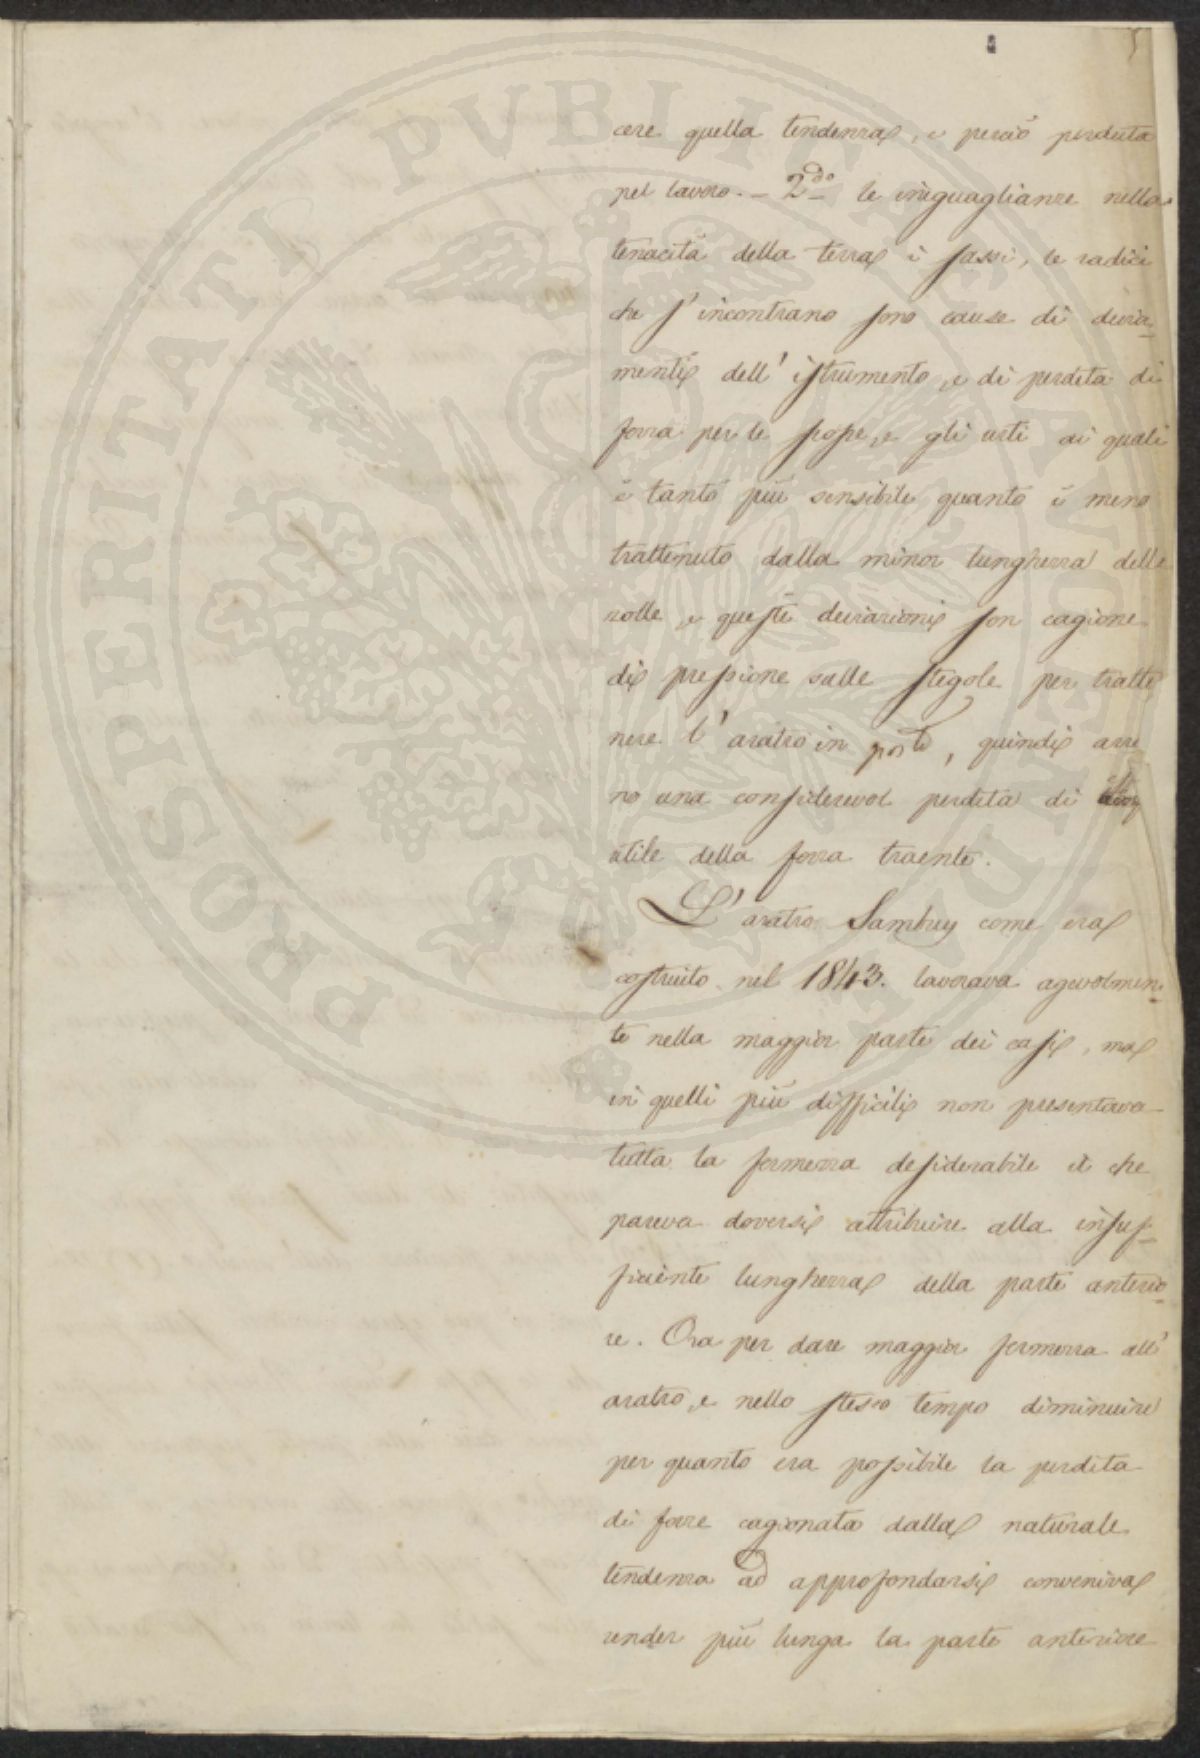 5
cere quella tendenza, e perciò perduta
pel lavoro. – 2do le ineguaglianze nella
tenacità della terra i sassi, le radici
che s'incontrano sono cause di devia-
menti dell'istrumento, e di perdita di
forza per le scosse, e gli urti ai quali
è tanto più sensibile quanto è meno
trattenuto dalla minor lunghezza delle
zolle, e queste deviazioni son cagione
di pressione sulle stegole per tratte
nere l'aratro in posto, quindi avvi
no una considerevol perdita di
utile della forza traente.
L'aratro Sambuy come era
costruito nel 1843. lavorava agevolmen-
te nella maggior parte dei casi, ma
in quelli più difficili non presentava
tutta la fermezza desiderabile il che
pareva doversi attribuire alla insuf-
ficiente lunghezza della parte anterio-
re. Ora per dare maggior fermezza all'
aratro, e nello stesso tempo diminuire
per quanto era possibile la perdita
di forze cagionata dalla naturale
tendenza ad approfondarsi conveniva
render più lunga la parte anteriore
PROSPERITATI PUBLICAE AUGENDAE